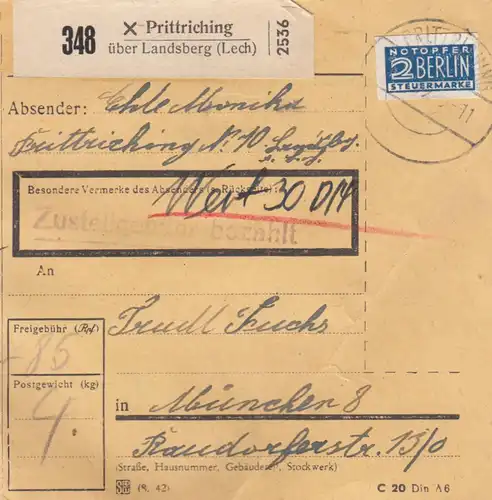 348 × Prittriching
über Landsberg (Lech)
2536
NOTOPFER
2 BERLIN
STEUERMARKE
Absender: Ehle Monika
Prittriching N: 10
Besondere Vermerke des Absenders (s. Rückseite):
Wert 30 DM
Zustellgebühr bezahlt
An
Trudl Fuchs
Freigebühr (Rpf)
85
Postgewicht (kg)
in München 8
13/0
(Straße, Hausnummer, Gebäudeteil, Stockwerk)
(8. 42)
C 20 Din A6